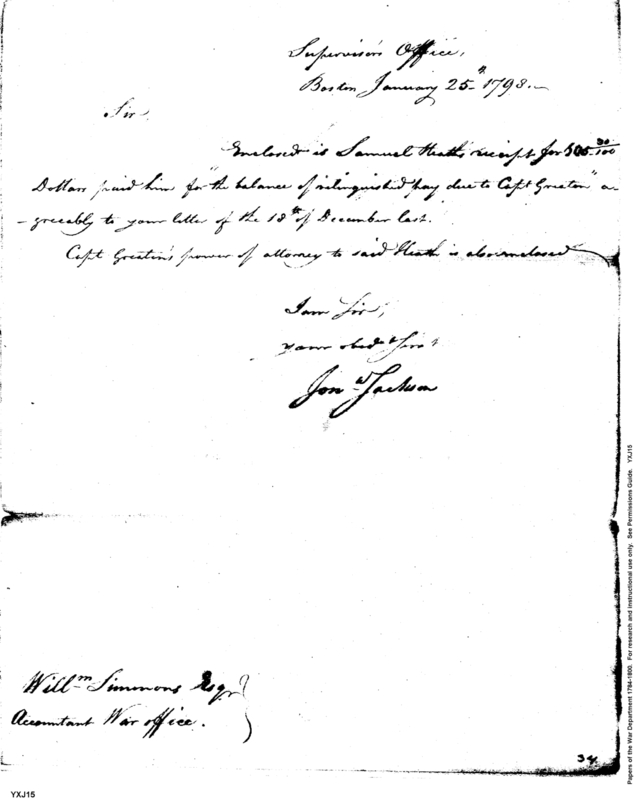 Supervisor's Office,
Boston January 25th 1798.
Sir
Enclosed is Samuel Heath's receipt for 30/100
Dollars paid him for "the balance of relinquished pay due to Capt Greaton" a
-greeably to your letter of the 18th of December last.
Capt Greaton's power of attorney to said Heath is also enclosed
I am Sir,
your obedt Servt
Jona Jackson
Willm Simmons Esqr
Accountant War office.
34
Papers of the War Department 1784-1800. For research and instructional use only. See Permissions Guide. YXJ15
YXJ15